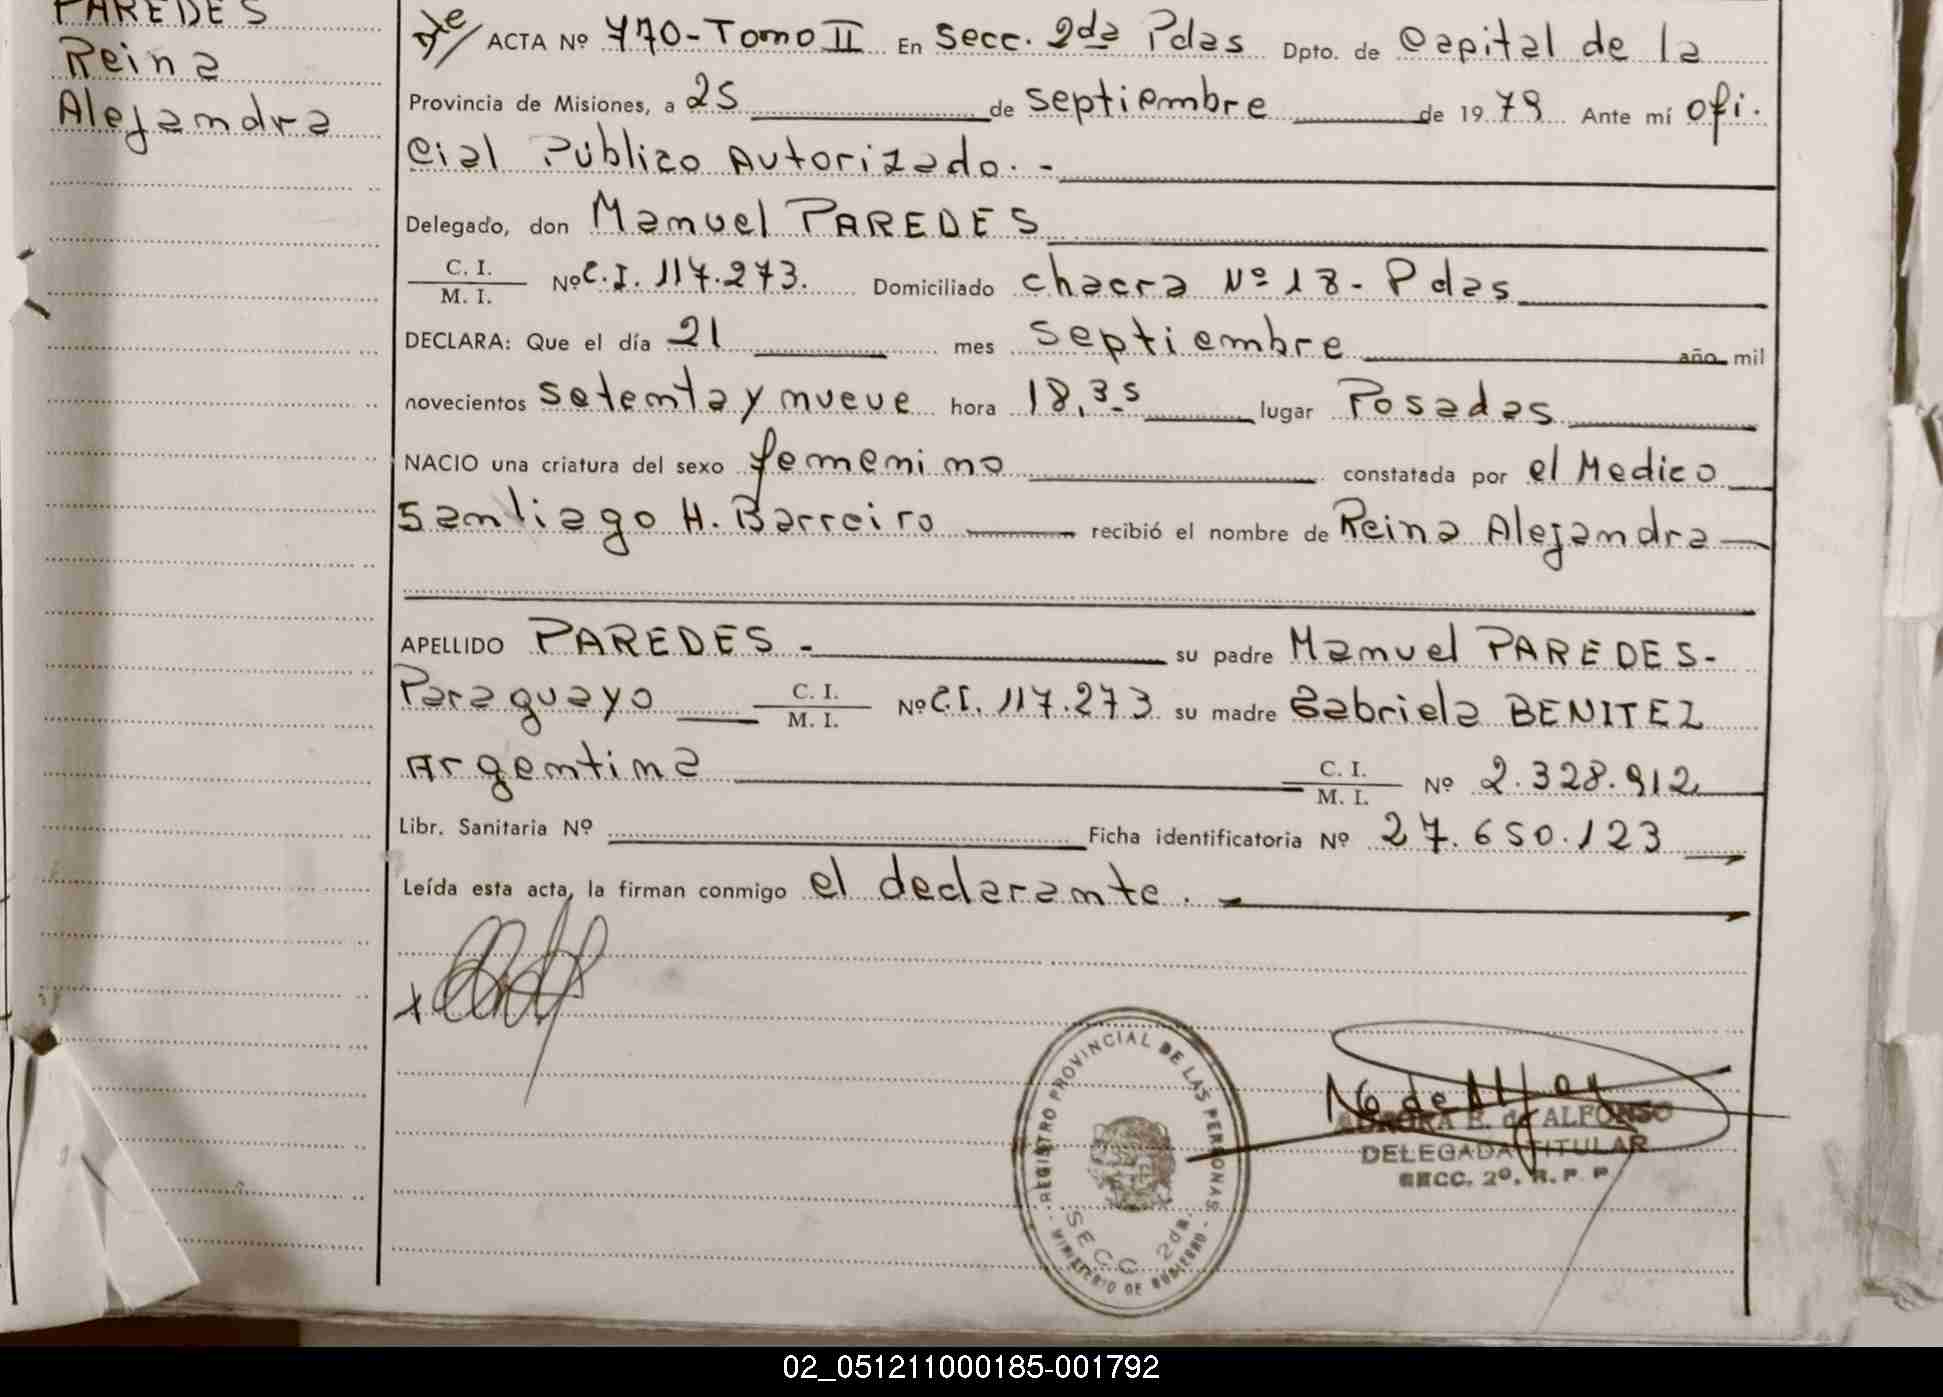 PAREDES
Reina
Alejandra
ACTA Nº 770-Tomo II En Secc. 2da Pdas Dpto. de Capital de la
Provincia de Misiones, a 25 de septiembre de 1979 Ante mí ofi.
cial Público Autorizado. -
Delegado, don Manuel PAREDES
C. I.
M. I.
Nº C.I. 117.273. Domiciliado chacra Nº 18 - Pdas
DECLARA: Que el día 21 mes septiembre año mil
novecientos setenta y nueve hora 18,35 lugar Posadas
NACIO una criatura del sexo femenino constatada por el Medico
Santiago H. Barreiro recibió el nombre de Reina Alejandra
APELLIDO PAREDES - su padre Manuel PAREDES-
Paraguayo C. I.
M. I.
Nº C.I. 117.273 su madre Gabriela BENITEZ
Argentina C. I.
M. I.
Nº 2.328.912
Libr. Sanitaria Nº Ficha identificatoria Nº 27.650.123
Leída esta acta, la firman conmigo el declarante.
REGISTRO PROVINCIAL DE LAS PERSONAS
SECC 2da.
MINISTERIO DE GOBIERNO
AURORA E. de ALFONSO
DELEGADA TITULAR
SECC. 2º. R. P. P.
02_051211000185-001792